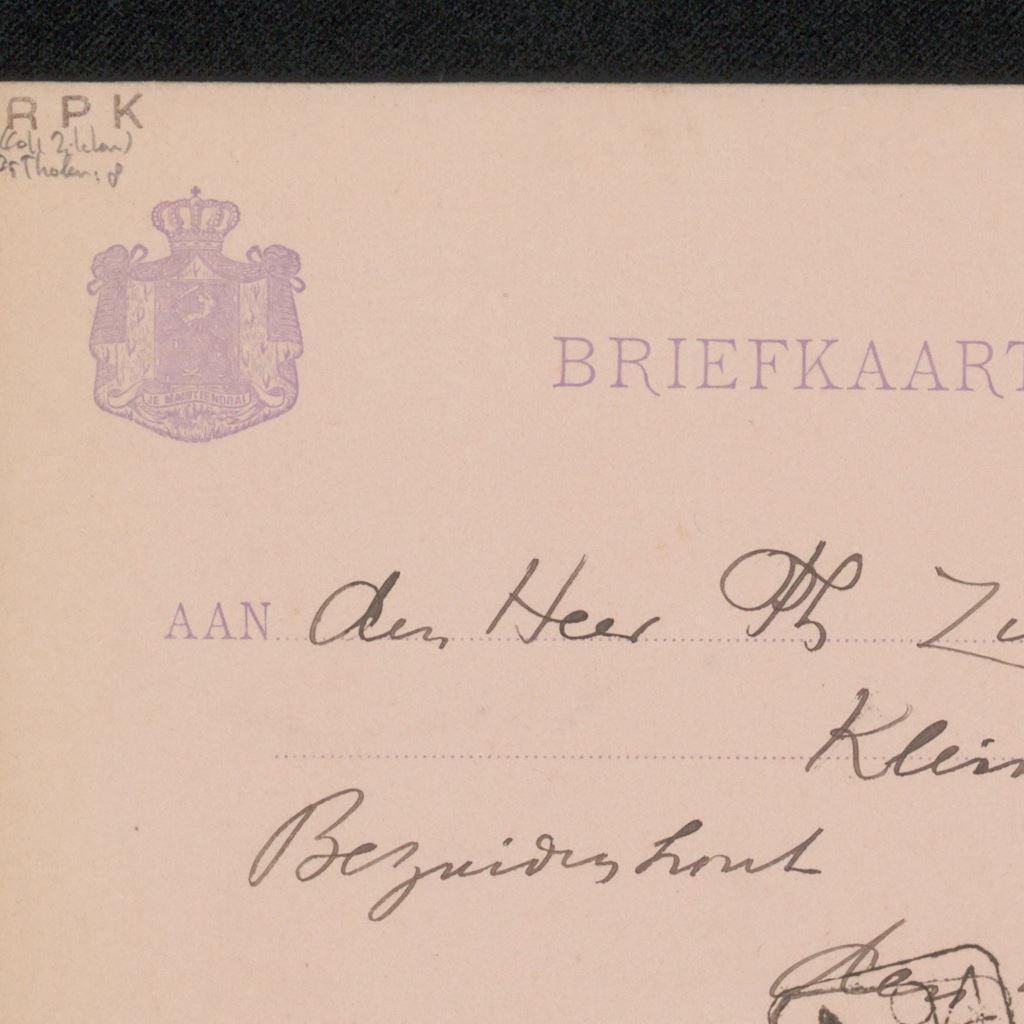 RPK
(Coll Zilcken)
Tholen: 8
JE MAINTIENDRAI
BRIEFKAART
AAN den Heer Ph Zi
Klein
Bezuidenhout
den